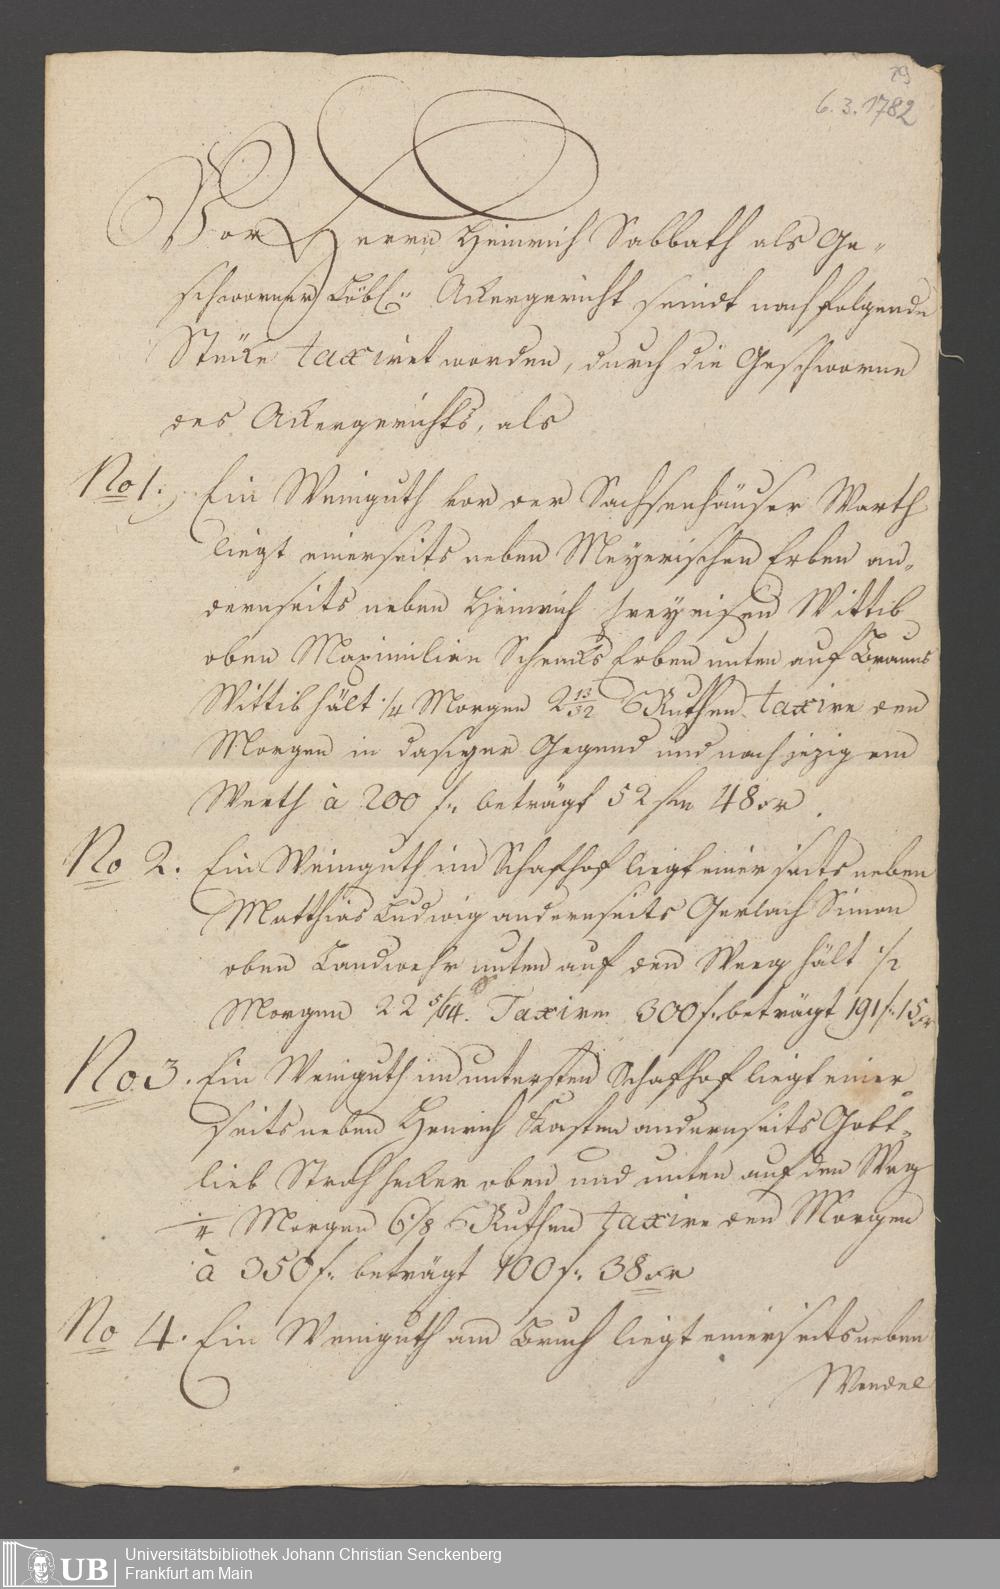 29
6.3.1782
Vor Herrn Heinrich Sabbath als Ge-
schworner Löbl: Ackergericht seindt nachfolgende
Stücke taxiret worden, durch die Geschworne
des Ackergerichts, als
No 1. Ein Weinguth vor der Sachsenhäuser Warth
liegt einerseits neben Meyerischen Erben an-
dernseits neben Heinrich Freyeisen Wittib
oben Maximilian Erben unten auf Brauns
Wittib hält 1/4 Morgen 2 13/32 Ruthen taxire den
Morgen in dasiger Gegend und nach jezigem
Werth à 200 f: beträgt 52 fl 48 xr.
No 2. Ein Weinguth im Schafhof liegt einerseits neben
Matthias Ludwig andernseits Gerlach Simon
oben Landwehr unten auf den Weeg hält 1/2
Morgen 22 5/64. Taxire 300 f: beträgt 191 f: 15 xr
No. 3. Ein Weinguth im untersten Schafhof liegt einer
seits neben Henrich Kasten andernseits Gott-
lieb Strohhecker oben und unten auf den Weg
1/4 Morgen 6 1/8 Ruthen taxire den Morgen
à 350 f: beträgt 100 f: 38 xr
No 4. Ein Weinguth am Bruch liegt einerseits neben
Wendel
UB
Universitätsbibliothek Johann Christian Senckenberg
Frankfurt am Main